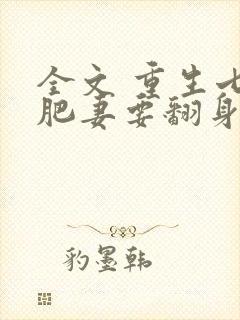 全文 重生七
肥妻要翻身
豹墨韩